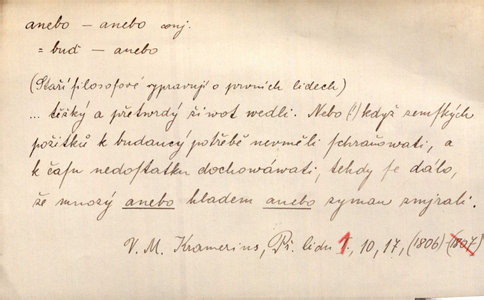 anebo — anebo conj.
= buď — anebo
(Staří filosofové vypravují o prvních lidech)
... těžký a přetvrdý žiwot wedli. Nebo (!) když zemských
požitků k budaucý potřebě neměli schraňowati, a
k času nedostatku dochowáwati, tehdy se dálo,
že mnozý anebo hladem anebo zymau zmjrali.
V. M. Kramerius, Př. lidu 1., 10, 17, (1806) (1807)